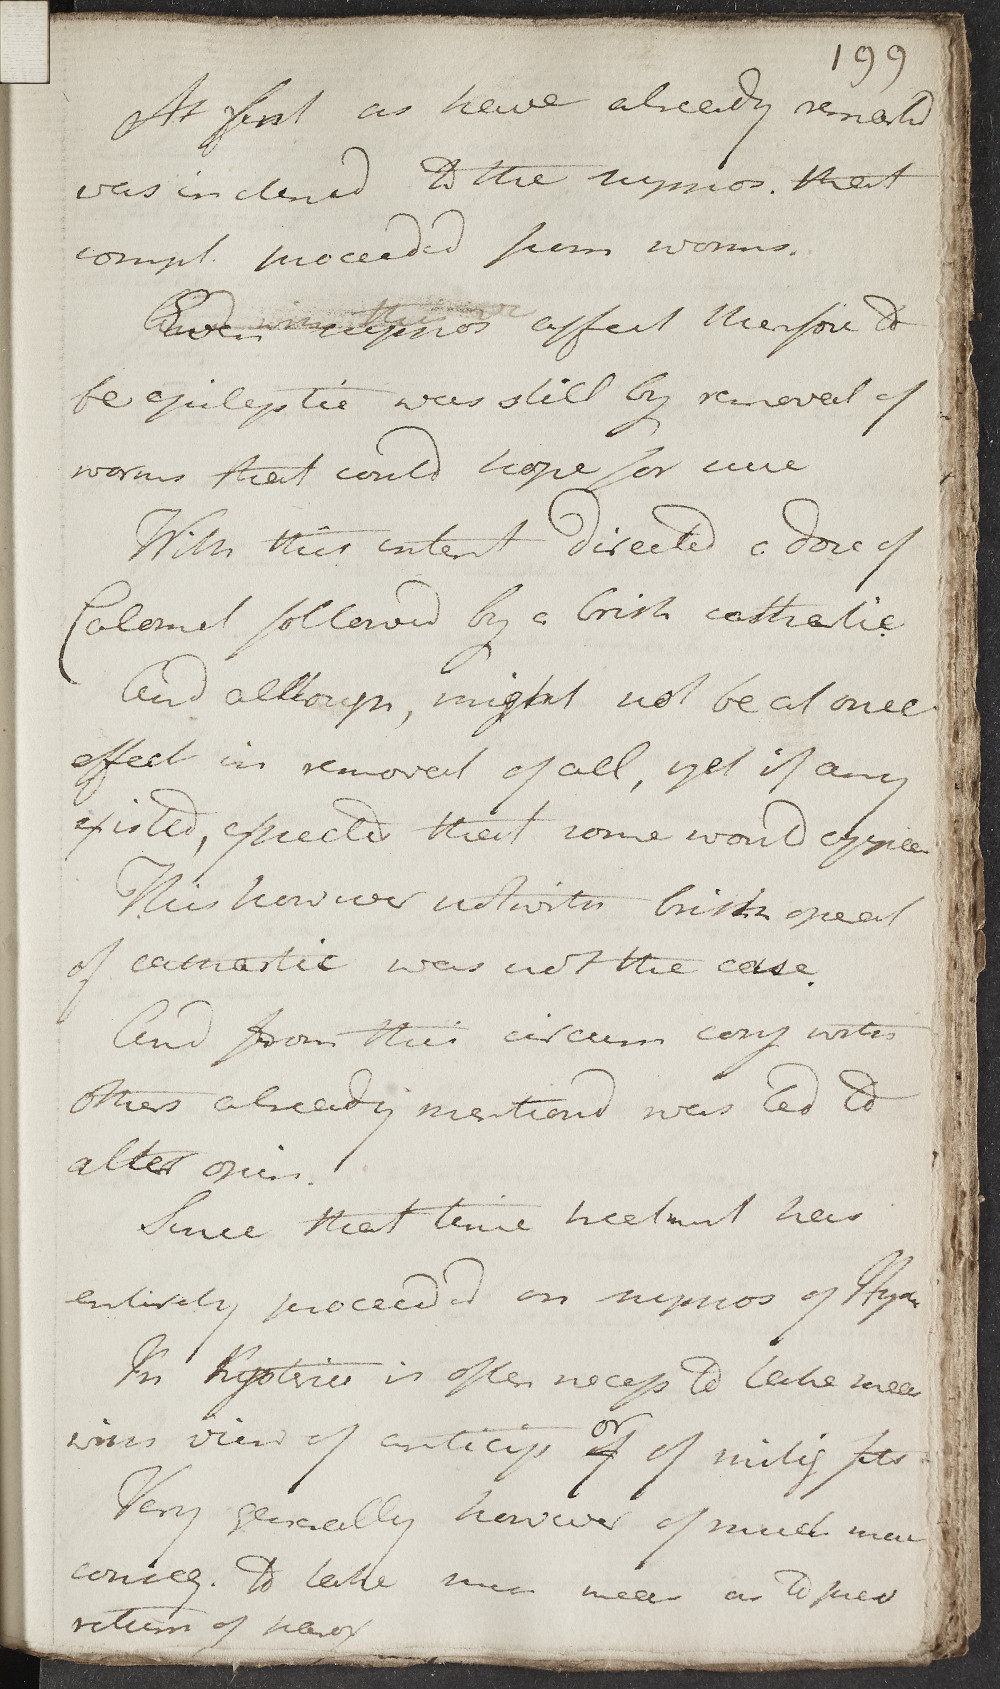 199
At first as have already remarkd
was inclened to the suppos. that
compl. proceeded from worms.
Even suppos affect therefore to
be epileptic was still by removal of
worms that could hope for cure
With this intent directed a dose of
Calomel followed by a brisk cathartic
And although, might not be at once
effect in removal of all, yet if any
existed, expected that some would appear
This however notwith brisk operat
of cathartic was not the case.
And from this circum conj with
others already mentiond was led to
alter opin.
Since that time treatment has
entirely proceeded on suppos of Hyster
In Hysteria is often necess to take meas
with view of anticip or of mitig fits
Very generally however of much more
conseq. to take such meas as to prev
return of parox